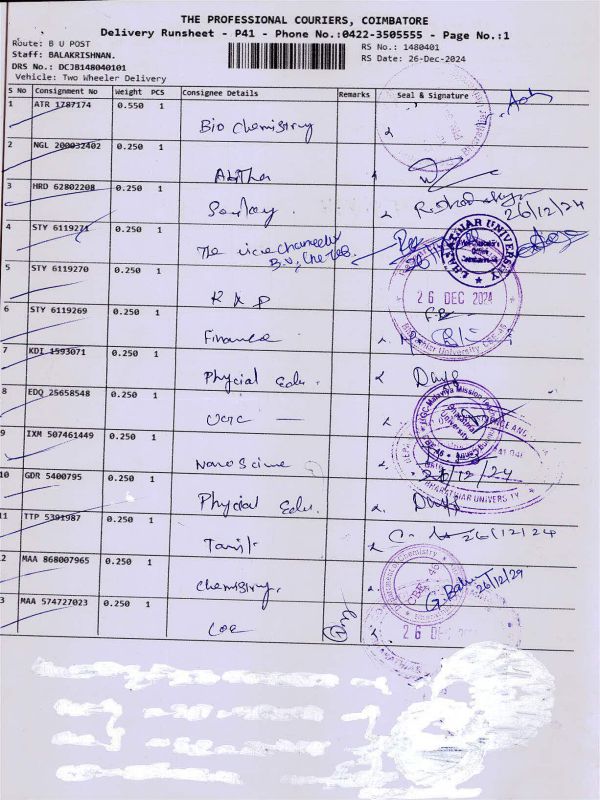 THE PROFESSIONAL COURIERS, COIMBATORE
Delivery Runsheet - P41 - Phone No.:0422-3505555 - Page No.:1
Route: B U POST
RS No.: 1480401
Staff: BALAKRISHNAN.
RS Date: 26-Dec-2024
DRS No.: DCJB148040101
Vehicle: Two Wheeler Delivery
S No Consignment No Weight PCS Consignee Details Remarks Seal & Signature
1 ATR 1787174 0.550 1
Bio Chemistry
2 NGL 200032402 0.250 1
3 HRD 62802208 0.250 1
26/12/24
4 STY 6119271 0.250 1
The vice chancellor
BHARATHIAR UNIVERSITY
5 STY 6119270 0.250 1
26 DEC 2024
Bharathiar University, CBE-46
6 STY 6119269 0.250 1
Finance
7 KDI 1593071 0.250 1
Physical Edu.
8 EDQ 25658548 0.250 1
UGC-Malaviya Mission
9 IXM 507461449 0.250 1
Nano Science
26/12/24
BHARATHIAR UNIVERSITY
10 GDR 5400795 0.250 1
Physical Edu.
11 TTP 5391987 0.250 1
Tamil
26/12/24
12 MAA 868007965 0.250 1
Chemistry.
Department of Chemistry
CBE-46
3 MAA 574727023 0.250 1
COE
26 DEC